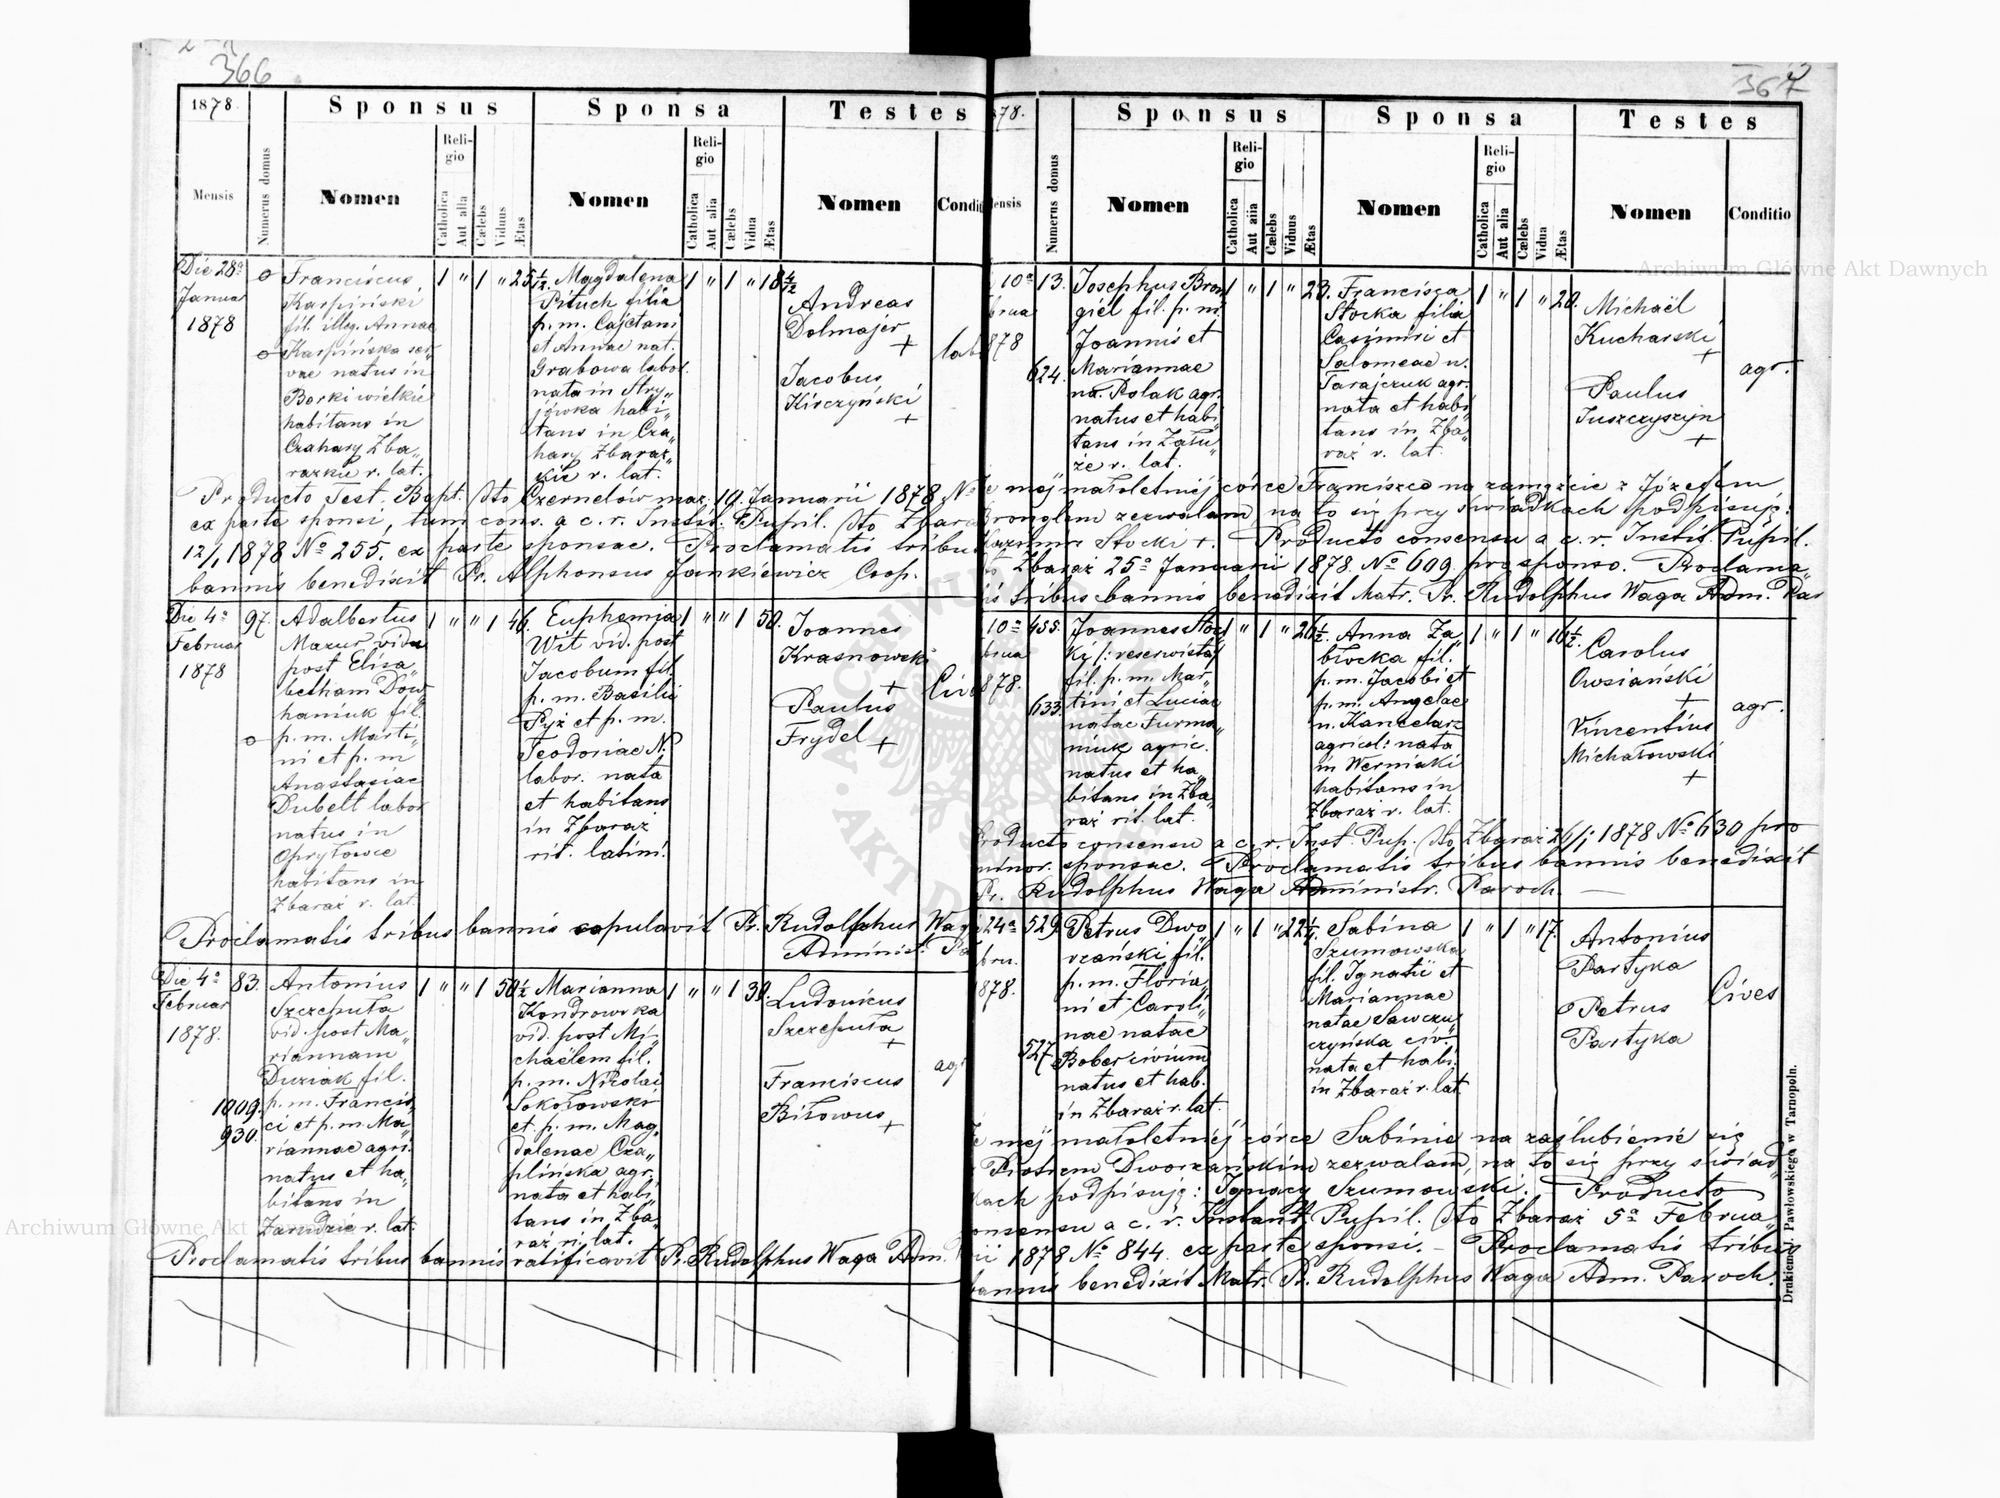 366
1878.
Sponsus
Sponsa
Testes
Mensis
Numerus domus
Nomen
Religio
Catholica
Aut alia
Cælebs
Viduus
Ætas
Nomen
Religio
Catholica
Aut alia
Cælebs
Vidua
Ætas
Nomen
Die 28ª
Januar
1878
Franciscus
Karpiński
fil. illeg. Annae
Karpińska ser„
vae natus in
Borki wielkie
habitans in
Czahary Zba„
razkie r. lat.
1 " 1 " 25½
Magdalena
Pituch filia
p. m. Cajetani
et Annae nat.
Grabowa labor.
nata in Stry„
jówka habi„
tans in Cza„
hary Zbaraz„
kie r. lat.
1 " 1 " 18
Andreas
Dolmajer
+
Jacobus
Kirczyński
+
Producto Test. Bapt. dto Czernelów maz. 19. Januarii 1878 Nº
ex parte sponsi, tum cons. a c. r. Instit. Pupil. dto Zbara
12/1 1878 Nº 255. ex parte sponsae. Proclamatis tribus
bannis benedixit Pr. Alphonsus Jankiewicz Coop.
Die 4ª
Februar
1878
97.
Adalbertus
Mazur vidu
post Elisa„
betham Dow
haniuk fil.
p. m. Marti„
ni et p. m
Anastasiae
Dubelt labor
natus in
Opryłowce
habitans in
Zbaraż r. lat.
1 " " 1 46.
Euphemia
Wit vid. post
Jacobum fil.
p. m. Basilii
Pyż et p. m.
Teodoriae N.
labor. nata
et habitans
in Zbaraż
rit. latini.
1 " " 1 50.
Joannes
Krasnowski
+
Paulus
Frydel +
Proclamatis tribus bannis copulavit Pr. Rudolphus Wag
Administ. Pa
Die 4ª
Februar
1878.
83.
1009.
930.
Antonius
Szczeputa
vid. post Ma„
riannam
Duziak fil.
p. m. Francis„
ci et p. m. Ma„
riannae agri.
natus et ha„
bitans in
Zarudzie r. lat.
1 " " 1 50½
Marianna
Kondrowska
vid. post Mi„
chaëlem fil.
p. m. Nikolai
Sokołowski
et p. m. Mag„
dalenae Cza„
plińska agr.
nata et habi„
tans in Zba„
raż ri. lat.
1 " " 1 39.
Ludovicus
Szczeputa
+
Franciscus
Biłowus
+
agr
Proclamatis tribus bannis ratificavit Pr. Rudolphus Waga Adm.
367
Sponsus
Sponsa
Testes
Numerus domus
Nomen
Religio
Catholica
Aut alia
Cælebs
Viduus
Ætas
Nomen
Religio
Catholica
Aut alia
Cælebs
Vidua
Ætas
Nomen
Conditio
10ª
brua
878
13.
624.
Josephus Bron
giél fil. p. m.
Joannis et
Mariannae
na. Polak agr.
natus et habi„
tans in Zału„
że r. lat.
1 " 1 " 23.
Francisca
Stocka filia
Casimiri et
Salomeae n.
Tarajczuk agr.
nata et habi„
tans in Zba„
raż r. lat.
1 " 1 " 20.
Michaël
Kucharski
+
Paulus
Juszczyszyn
+
agr.
mej małoletniéj córce Franciszce na zamęźcie z Józefem
Bronglem zezwalam, na to się przy świadkach podpisuję:
Kazimir Stocki +. – Producto consensu a c. r. Instit. Pupil.
Zbaraż 25ª Januarii 1878. Nº 609. pro sponso. Proclama„
tis tribus bannis benedixit Matr. Pr. Rudolphus Waga Adm. Par
10ª
brua
878.
455.
633.
Joannes Stoc„
ki /: reserwista /
fil. p. m. Mar„
tini et Luciae
natae Furma„
niuk agric.
natus et ha„
bitans in Zba„
raż rit. lat.
1 " 1 " 26½.
Anna Za„
błocka fil.
p. m. Jacobi et
p. m. Angelae
n. Kancelarz
agricol: nata
in Werniaki
habitans in
Zbaraż r. lat.
1 " 1 " 16½
Carolus
Owsiański
+
Vincentius
Michałowski
+
agr.
Producto consensu a c. r. Inst. Pup. dto Zbaraż 26/1 1878 Nº 630 pro
minor. sponsae. Proclamatis tribus bannis benedixit
Pr. Rudolphus Waga Administr. Paroch.
24ª
bru.
1878.
529.
527
Petrus Dwo„
rzański fil.
p. m. Floria„
ni et Caroli„
nae natae
Bober civium
natus et hab.
in Zbaraż r. lat.
1 " 1 " 22¼.
Sabina
Szumowska
fil. Ignatii et
Mariannae
natae Sawczu„
czyńska civ.
nata et habi.
in Zbaraż r. lat.
1 " 1 " 17.
Antonius
Partyka
Petrus
Partyka
Cives
mej małoletniéj córce Sabinie na zaślubienié się
Piotrem Dworzańskim zezwalam, na to się przy świad„
kach podpisuję: Ignacy Szumowski. – Producto
consensu a c. r. Instant. Pupil. dto Zbaraż 5ª Februa„
rii 1878 Nº 844. ex parte sponsi. – Proclamatis tribus
bannis benedixit Matr. Pr. Rudolphus Waga Adm. Paroch.
Drukiem J. Pawłowskiego w Tarnopolu.
Archiwum Główne Akt Dawnych
Archiwum Główne Akt Dawnych